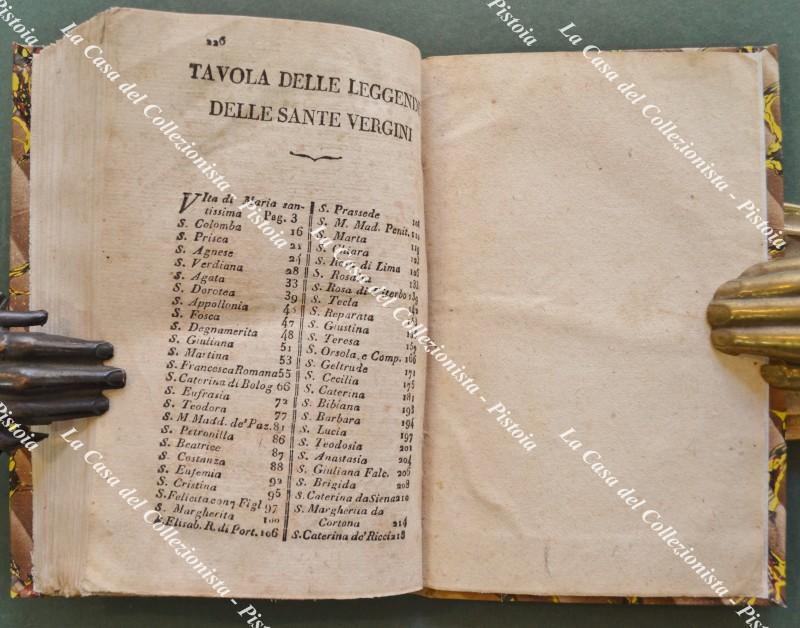 226
TAVOLA DELLE LEGGENDE
DELLE SANTE VERGINI
VIta di Maria san-
tissima Pag. 3
S. Colomba 16
S. Prisca 21
S. Agnese 24
S. Verdiana 28
S. Agata 33
S. Dorotea 39
S. Appollonia 45
S. Fosca 47
S. Degnamerita 48
S. Giuliana 51
S. Martina 53
S. Francesca Romana 55
S. Caterina di Bolog. 66
S. Eufrasia 72
S. Teodora 77
S. M. Madd. de' Paz. 81
S. Petronilla 86
S. Beatrice 87
S. Costanza 88
S. Eufemia 92
S. Cristina 95
S. Felicita con 7 Figl. 97
S. Margherita 100
S. Elisab. R. di Port. 106
S. Prassede
S. M. Mad. Penit.
S. Marta
S. Chiara
S. Rosa di Lima
S. Rosalia
S. Rosa di Viterbo 139
S. Tecla
S. Reparata
S. Giustina
S. Teresa
S. Orsola, e Comp. 166
S. Geltrude 171
S. Cecilia 175
S. Caterina 181
S. Bibiana 193
S. Barbara 194
S. Lucia 197
S. Teodosia 201
S. Anastasia 204
S. Giuliana Falc. 206
S. Brigida 208
S. Caterina da Siena 210
S. Margherita da
Cortona 214
S. Caterina de' Ricci 218
La Casa del Collezionista - Pistoia
La Casa del Collezionista - Pistoia
La Casa del Collezionista - Pistoia
La Casa del Collezionista - Pistoia
La Casa del Collezionista - Pistoia
La Casa del Collezionista - Pistoia